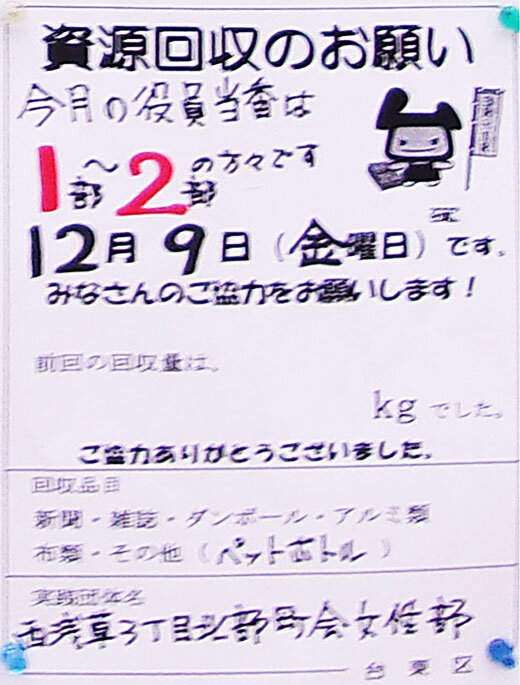 資源回収のお願い
今月の役員当番は
1部～2部の方々です
12月9日(金曜日)です。
みなさんのご協力をお願いします!
前回の回収量は、
kgでした。
ご協力ありがとうございました。
回収品目
新聞・雑誌・ダンボール・アルミ類
布類・その他(ペットボトル)
実践団体名
西浅草3丁目北部町会女性部
台東区